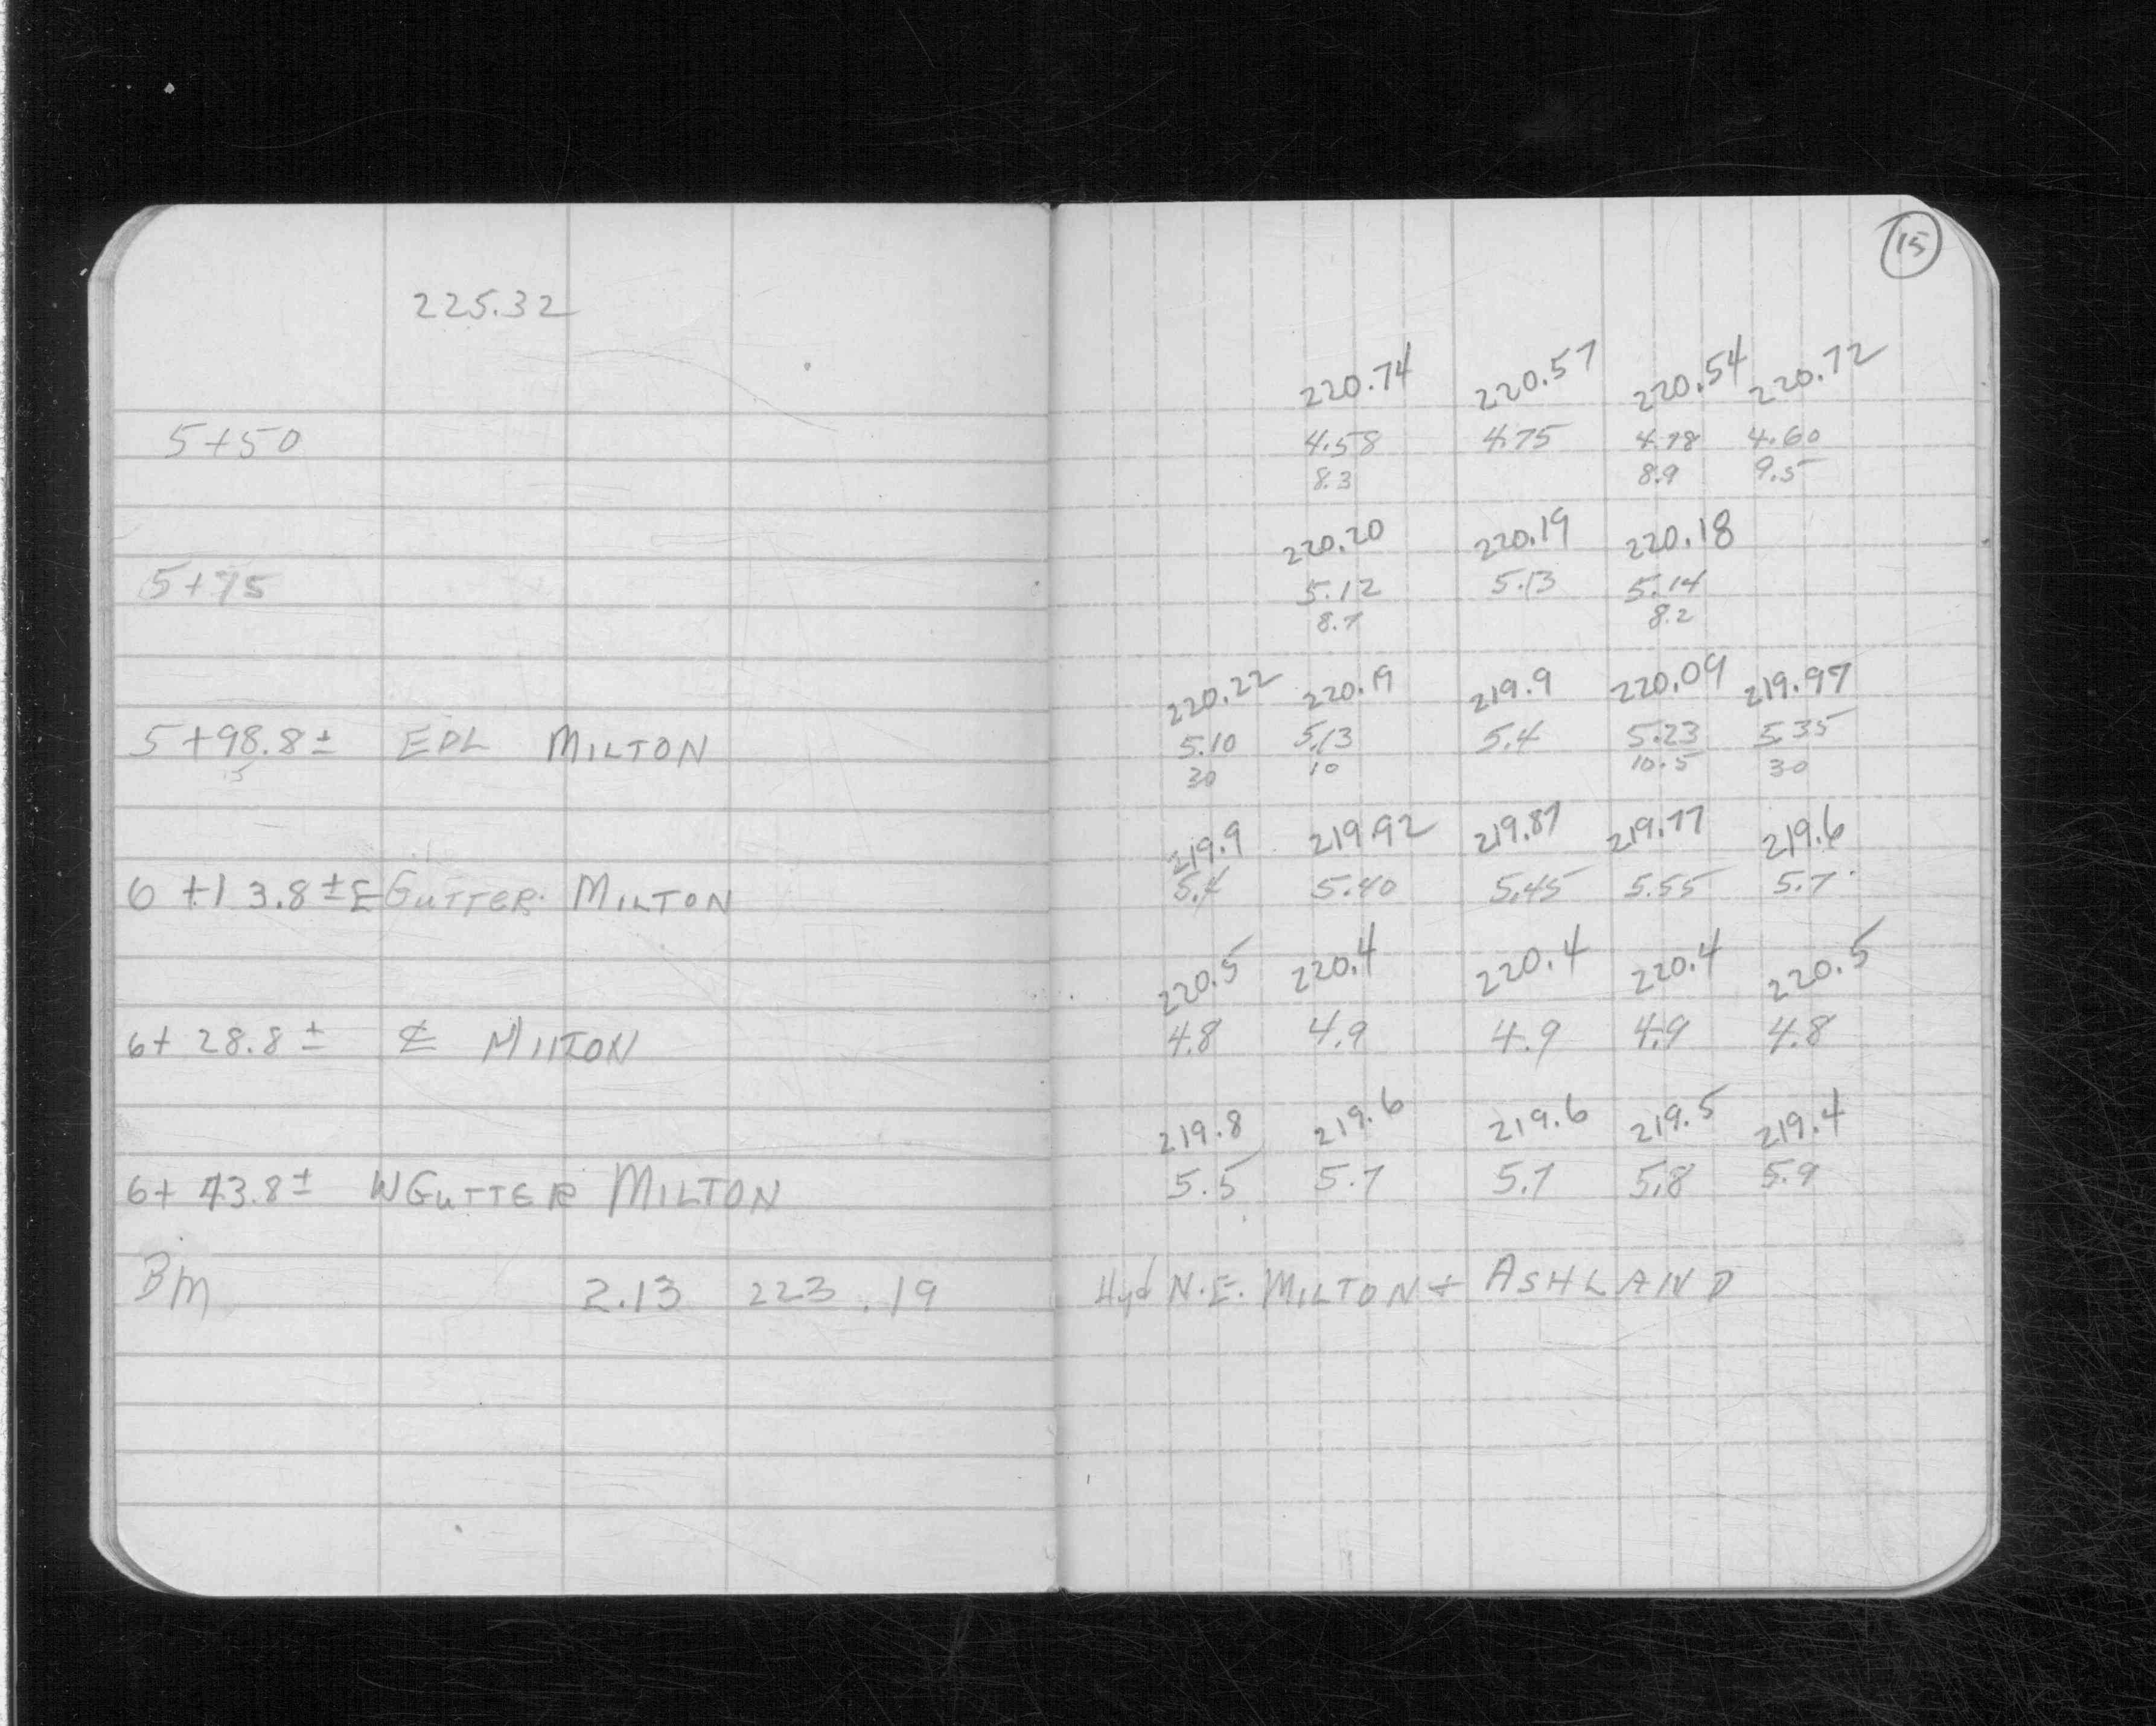 15
225.32
220.74 220.57 220.54 220.72
5+50 4.58 4.75 4.78 4.60
8.3 8.9 9.5
220.20 220.19 220.18
5+75 5.12 5.13 5.14
8.7 8.2
220.22 220.19 219.9 220.09 219.97
5+98.8± EPL MILTON 5.10 5.13 5.4 5.23 5.35
30 10 10.5 30
219.9 219.92 219.87 219.77 219.6
6+13.8± E GUTTER MILTON 5.4 5.40 5.45 5.55 5.7
220.5 220.4 220.4 220.4 220.5
6+28.8± ℄ MILTON 4.8 4.9 4.9 4.9 4.8
219.8 219.6 219.6 219.5 219.4
6+43.8± W GUTTER MILTON 5.5 5.7 5.7 5.8 5.9
BM 2.13 223.19 Hyd N.E. MILTON + ASHLAND